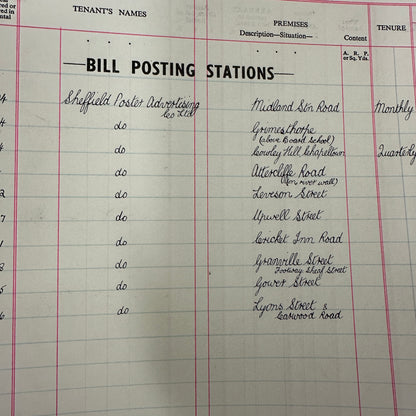 TENANT'S NAMES
PREMISES
Description—Situation—
Content
TENURE
A. R. P.
or Sq. Yds.
BILL POSTING STATIONS
Sheffield Poster Advertising Co Ltd
Midland Stn Road
Monthly
do
Grimesthorpe
(above Board School)
do
Cowley Hill, Chapeltown
Quarterly
do
Attercliffe Road
(on river wall)
do
Leveson Street
do
Upwell Street
do
Cricket Inn Road
do
Granville Street
Footway Sheaf Street
do
Gower Street
do
Lyons Street &
Carwood Road